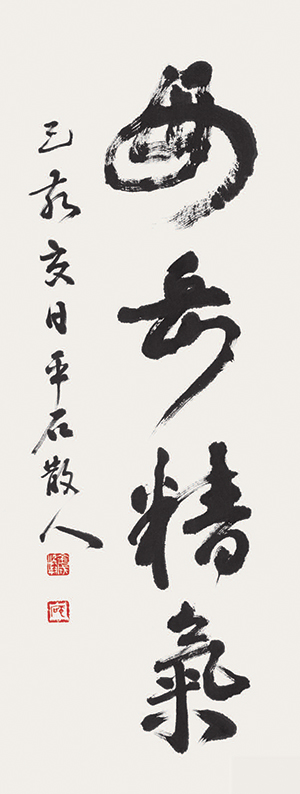 西岳精氣
己亥夏日平石散人